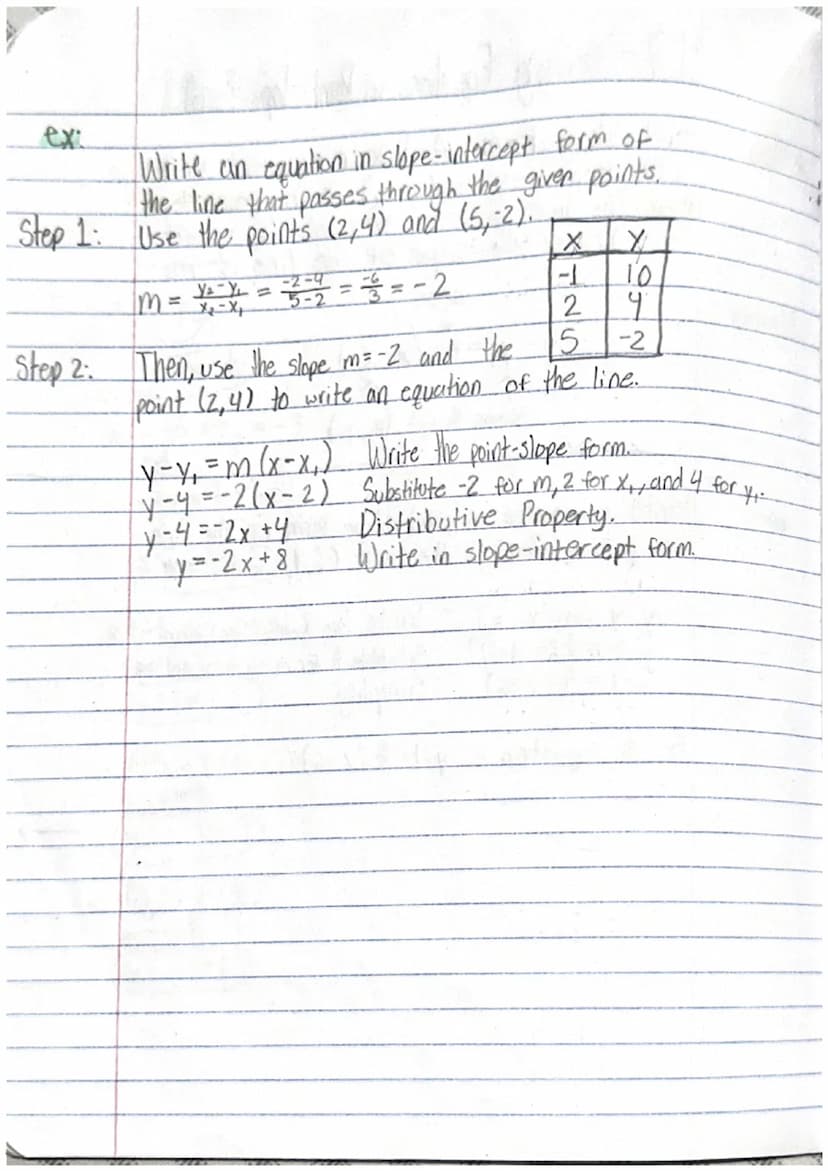 ex:
Write an equation in slope-intercept form of
the line that passes through the given points.
Step 1: Use the points (2,4) and (5,-2).
m = y₂-y₁/x₂-x₁ = -2-4/5-2 = -6/3 = -2
x y
-1 10
2 4
5 -2
Step 2: Then, use the slope m=-2 and the
point (2,4) to write an equation of the line.
y-y₁ = m(x-x₁) Write the point-slope form.
y-4 = -2(x-2) Substitute -2 for m, 2 for x₁, and 4 for y₁.
y-4 = -2x+4 Distributive Property.
y = -2x+8 Write in slope-intercept form.